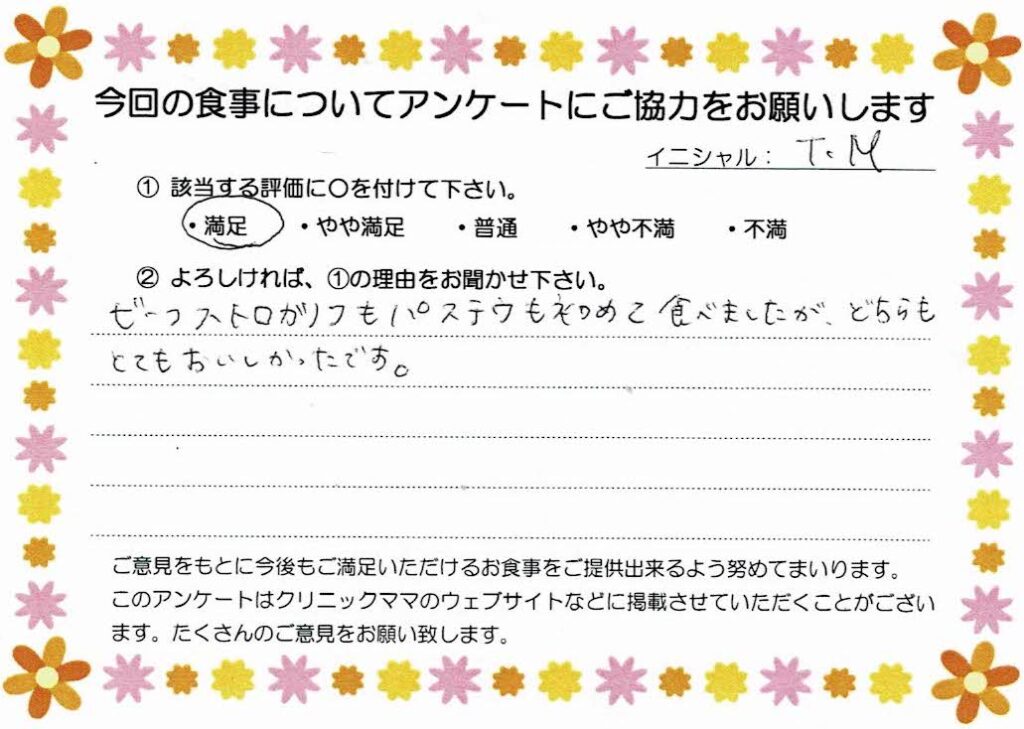 今回の食事についてアンケートにご協力をお願いします
イニシャル： T.M
① 該当する評価に〇を付けて下さい。
・満足 ・やや満足 ・普通 ・やや不満 ・不満
② よろしければ、①の理由をお聞かせ下さい。
ビーフストロガノフもパステウも初めて食べましたが、どちらも
とてもおいしかったです。
ご意見をもとに今後もご満足いただけるお食事をご提供出来るよう努めてまいります。
このアンケートはクリニックママのウェブサイトなどに掲載させていただくことがござい
ます。たくさんのご意見をお願い致します。